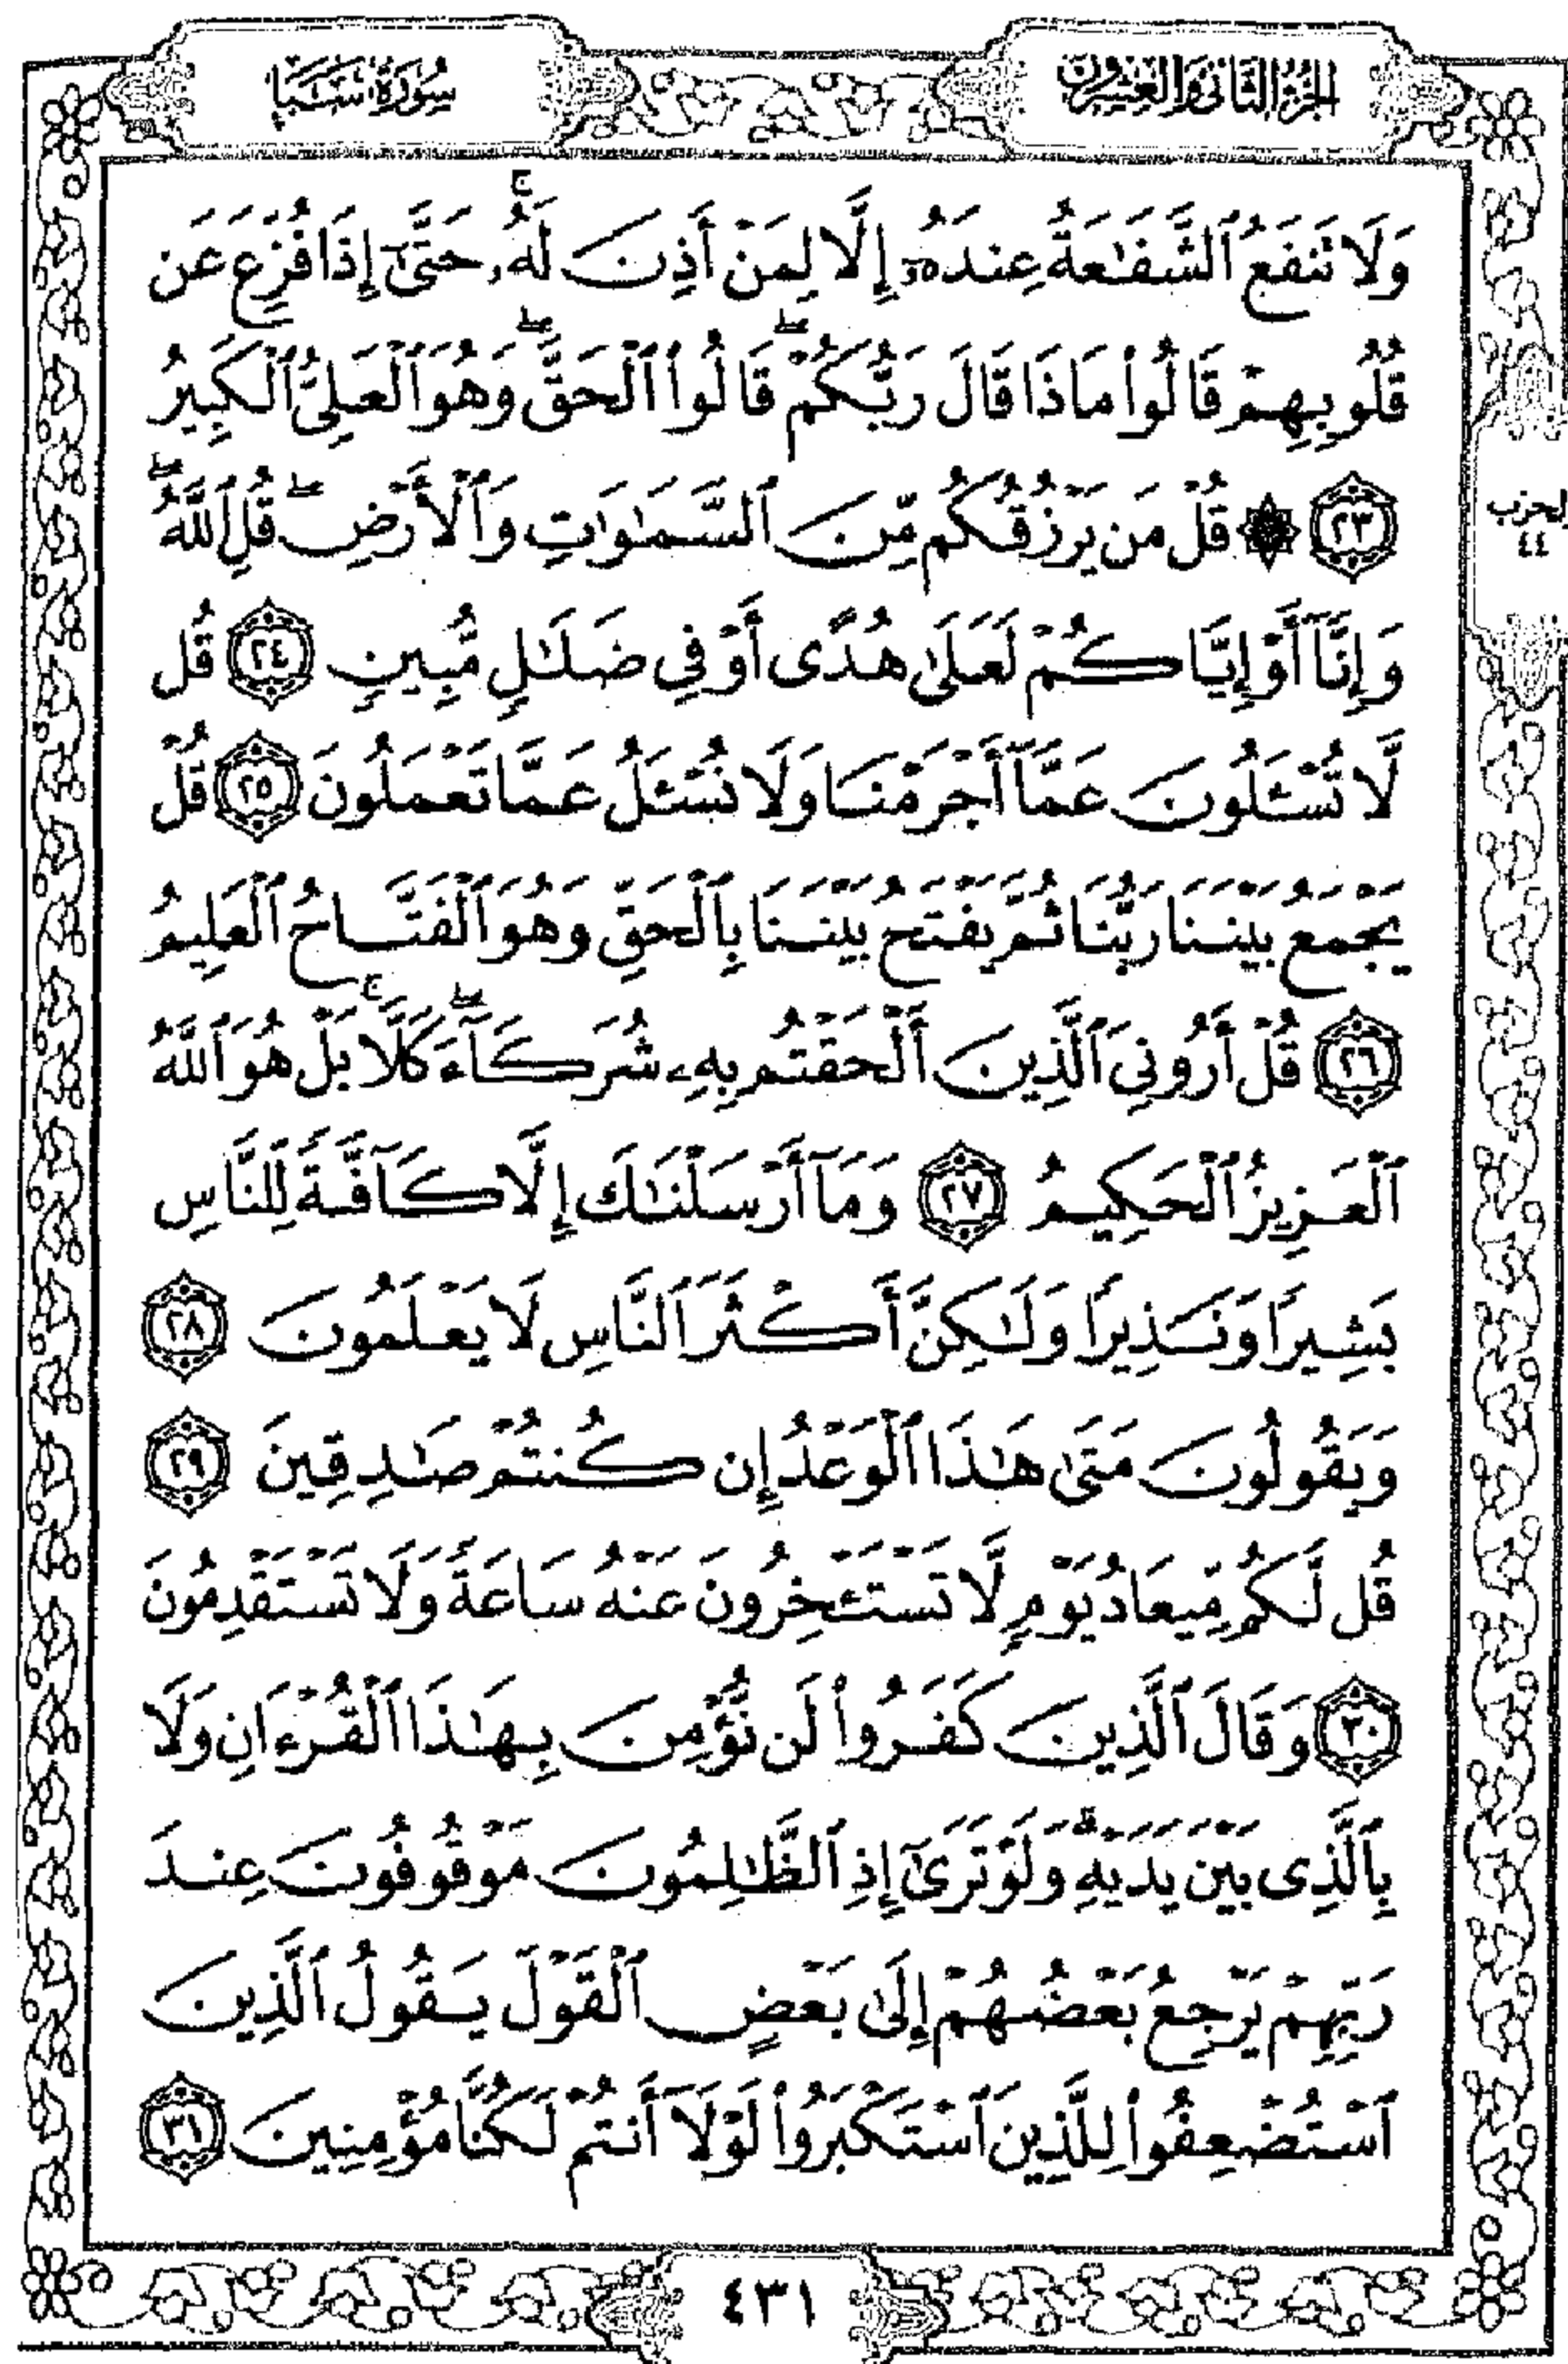 الجزء الثاني والعشرون
سورة سبإ
وَلَا تَنفَعُ ٱلشَّفَٰعَةُ عِندَهُۥٓ إِلَّا لِمَنْ أَذِنَ لَهُۥۚ حَتَّىٰٓ إِذَا فُزِّعَ عَن
قُلُوبِهِمْ قَالُوا۟ مَاذَا قَالَ رَبُّكُمْۖ قَالُوا۟ ٱلْحَقَّۖ وَهُوَ ٱلْعَلِىُّ ٱلْكَبِيرُ
﴿٢٣﴾ ۞ قُلْ مَن يَرْزُقُكُم مِّنَ ٱلسَّمَٰوَٰتِ وَٱلْأَرْضِۖ قُلِ ٱللَّهُۖ
وَإِنَّآ أَوْ إِيَّاكُمْ لَعَلَىٰ هُدًى أَوْ فِى ضَلَٰلٍ مُّبِينٍ ﴿٢٤﴾ قُل
لَّا تُسْـَٔلُونَ عَمَّآ أَجْرَمْنَا وَلَا نُسْـَٔلُ عَمَّا تَعْمَلُونَ ﴿٢٥﴾ قُلْ
يَجْمَعُ بَيْنَنَا رَبُّنَا ثُمَّ يَفْتَحُ بَيْنَنَا بِٱلْحَقِّ وَهُوَ ٱلْفَتَّاحُ ٱلْعَلِيمُ
﴿٢٦﴾ قُلْ أَرُونِىَ ٱلَّذِينَ أَلْحَقْتُم بِهِۦ شُرَكَآءَۖ كَلَّاۚ بَلْ هُوَ ٱللَّهُ
ٱلْعَزِيزُ ٱلْحَكِيمُ ﴿٢٧﴾ وَمَآ أَرْسَلْنَٰكَ إِلَّا كَآفَّةً لِّلنَّاسِ
بَشِيرًا وَنَذِيرًا وَلَٰكِنَّ أَكْثَرَ ٱلنَّاسِ لَا يَعْلَمُونَ ﴿٢٨﴾
وَيَقُولُونَ مَتَىٰ هَٰذَا ٱلْوَعْدُ إِن كُنتُمْ صَٰدِقِينَ ﴿٢٩﴾
قُل لَّكُم مِّيعَادُ يَوْمٍ لَّا تَسْتَـْٔخِرُونَ عَنْهُ سَاعَةً وَلَا تَسْتَقْدِمُونَ
﴿٣٠﴾ وَقَالَ ٱلَّذِينَ كَفَرُوا۟ لَن نُّؤْمِنَ بِهَٰذَا ٱلْقُرْءَانِ وَلَا
بِٱلَّذِى بَيْنَ يَدَيْهِۗ وَلَوْ تَرَىٰٓ إِذِ ٱلظَّٰلِمُونَ مَوْقُوفُونَ عِندَ
رَبِّهِمْ يَرْجِعُ بَعْضُهُمْ إِلَىٰ بَعْضٍ ٱلْقَوْلَ يَقُولُ ٱلَّذِينَ
ٱسْتُضْعِفُوا۟ لِلَّذِينَ ٱسْتَكْبَرُوا۟ لَوْلَآ أَنتُمْ لَكُنَّا مُؤْمِنِينَ ﴿٣١﴾
الحزب
٤٤
٤٣١